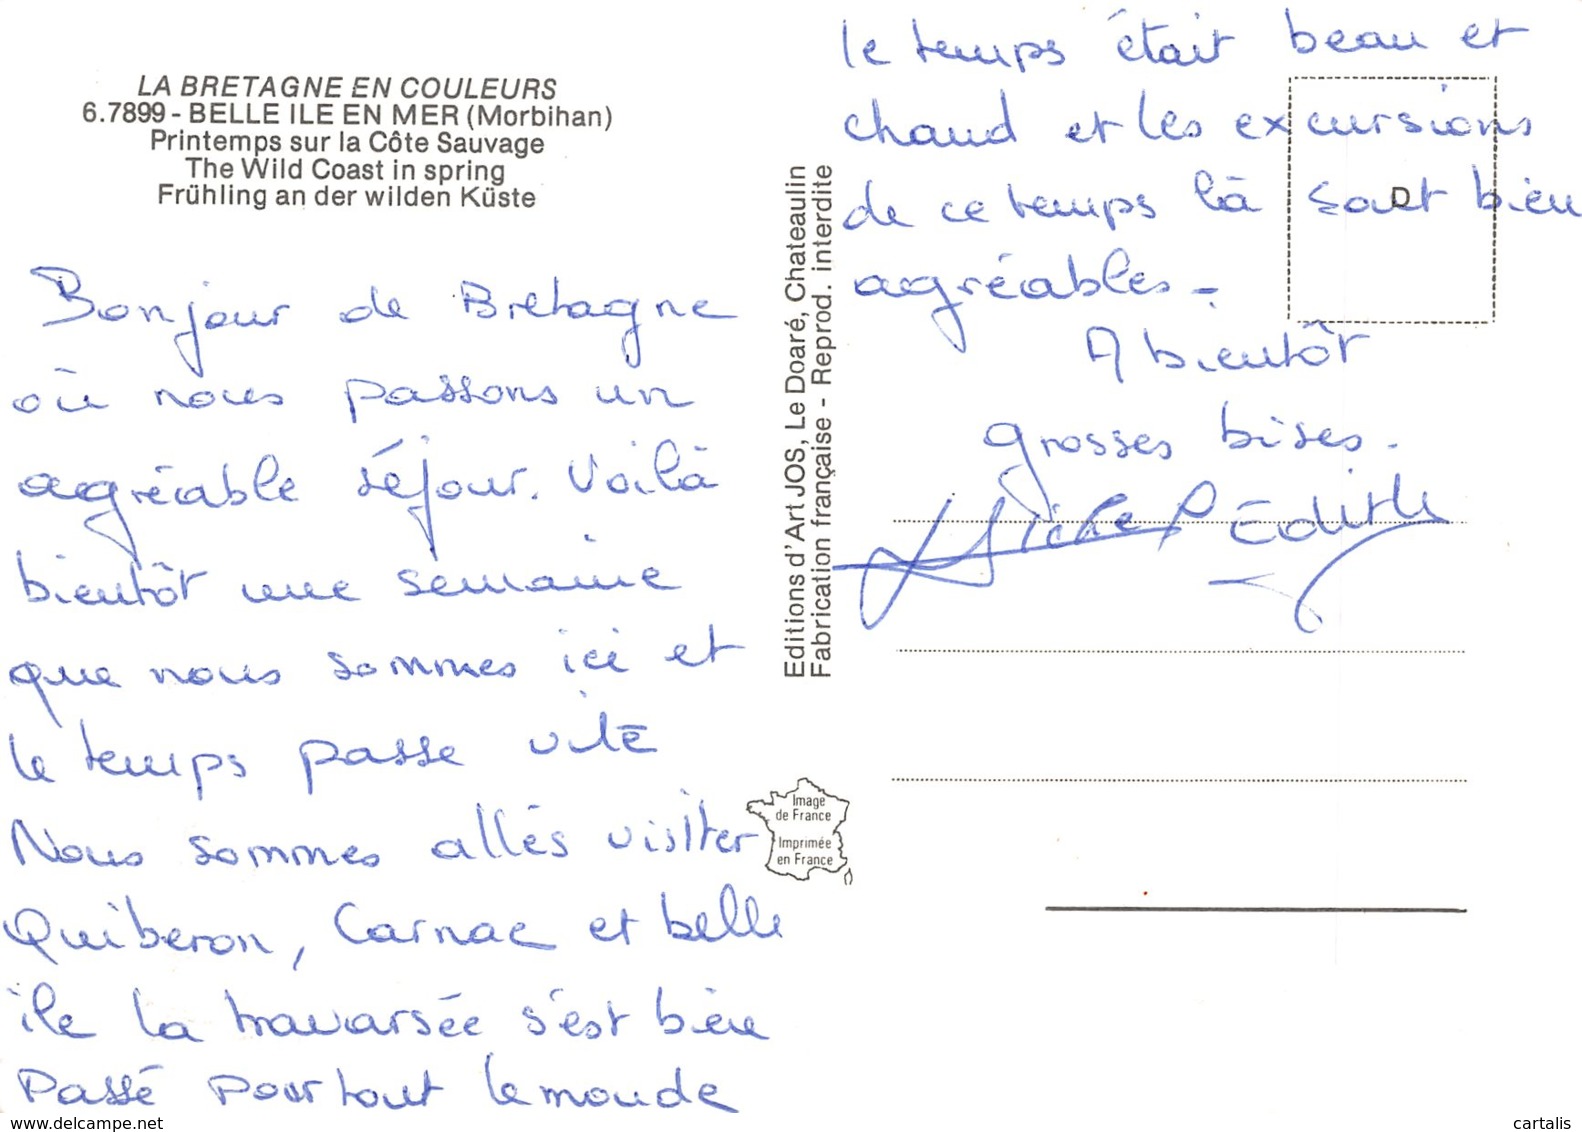 LA BRETAGNE EN COULEURS
6.7899 - BELLE ILE EN MER (Morbihan)
Printemps sur la Côte Sauvage
The Wild Coast in spring
Frühling an der wilden Küste
Bonjour de Bretagne
où nous passons un
agréable séjour. Voilà
bientôt une semaine
que nous sommes ici et
le temps passe vite
Nous sommes allés visiter
Quiberon, Carnac et belle
île la travarsée s'est bien
Passé pour tout le monde
le temps était beau et
chaud et les excursions
de ce temps là sont bien
agréables -
A bientôt
grosses bises.
Michel Edith
Editions d'Art JOS, Le Doaré, Chateaulin
Fabrication française - Reprod. interdite
D
Image
de France
Imprimée
en France
www.delcampe.net
cartalis